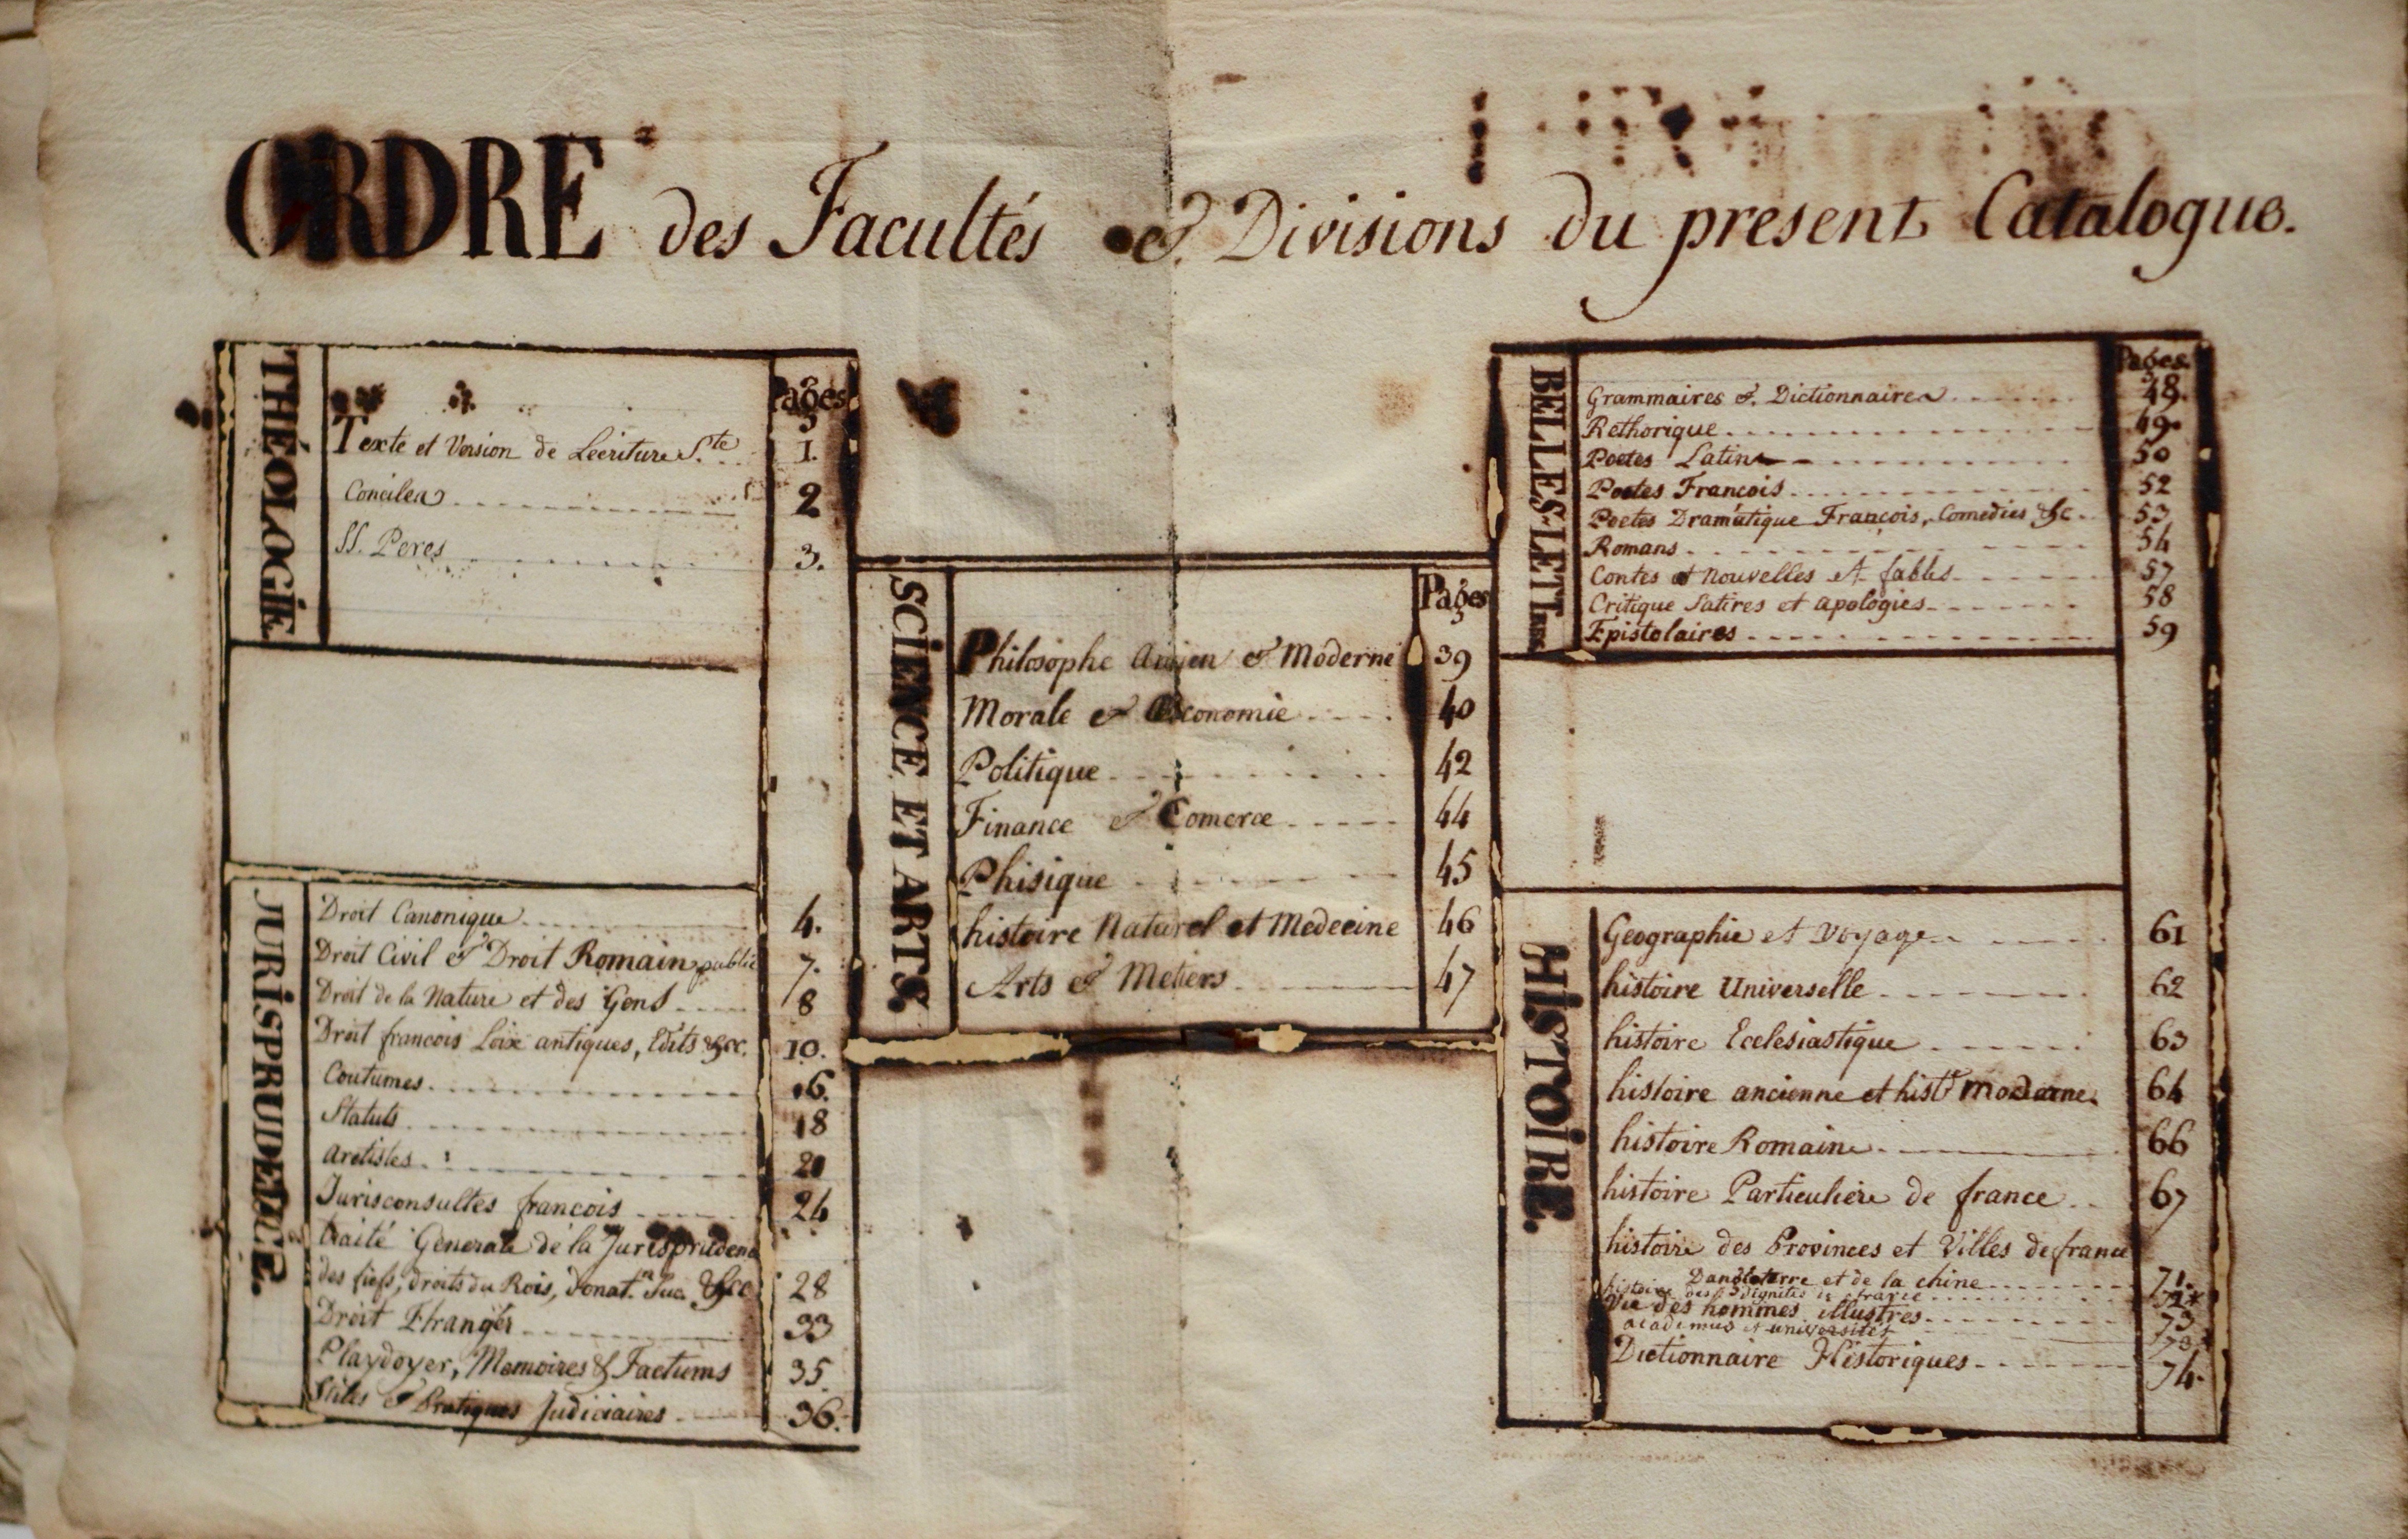 ORDRE des Facultés & Divisions du present Catalogue.
THÉOLOGIE
Pages
Texte et Version de Lecriture S.te 1.
Conciles 2
SS. Peres 3.
JURISPRUDENCE.
Droit Canonique 4.
Droit Civil & Droit Romain public 7.
Droit de la Nature et des Gens 8
Droit francois Loix antiques, Edits &cc. 10.
Coutumes 16.
Statuts 18
Aretistes 20
Jurisconsultes francois 24
traité Generale de la Jurisprudence
des fiefs, droits du Rois, donat.n Suc. &cc 28
Droit Etranger 33
Playdoyer, Memoires & Factums 35.
Stiles & Pratiques Judiciaires 36.
SCIENCE ET ARTS.
Pages
Philosophe Ancien & Moderne 39
Morale & Œconomie 40
Politique 42
Finance & Comerce 44
Phisique 45
histoire Naturel et Medecine 46
Arts & Metiers 47
BELLES-LETTRES
Pages.
Grammaires & Dictionnaires 48.
Rethorique 49.
Poetes Latins 50
Poetes Francois 52
Poetes Dramatique François, Comedies &c. 53
Romans 54
Contes et Nouvelles et fables 57
Critique Satires et apologies 58
Epistolaires 59
HISTOIRE.
Geographie et Voyages 61
histoire Universelle 62
histoire Ecclesiastique 63
histoire ancienne et hist.e moderne. 64
histoire Romaine 66
histoire Particuliere de france 67
histoire des Provinces et Villes de france
Dangleterre et de la chine 71.
histoire des dignités france 72*
Vie des hommes illustres 73
academies et universités 73*
Dictionnaire Historiques 74.